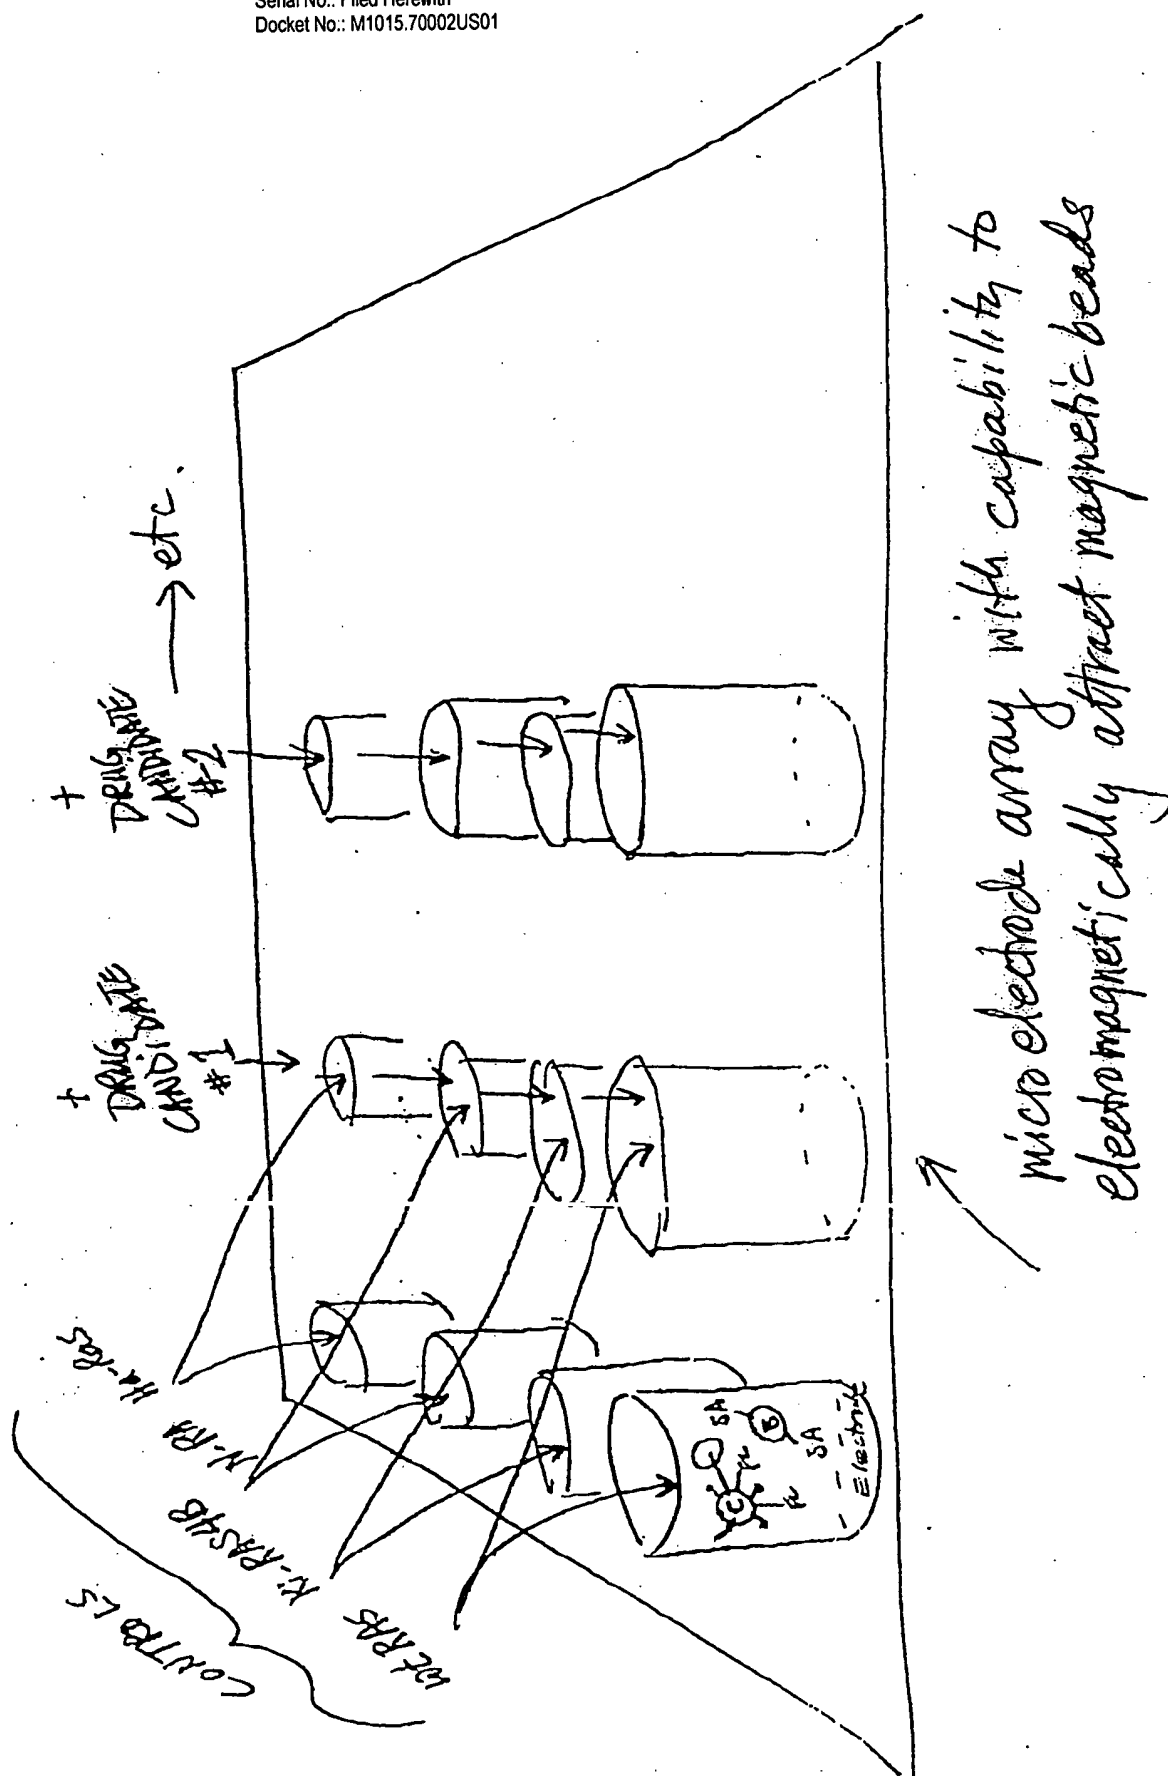 Serial No.: Filed Herewith
Docket No.: M1015.70002US01
CONTROLS
Ha-Ras
N-RA
Ki-RAS4B
wt RAS
+
DRUG
CANDIDATE
#1
+
DRUG
CANDIDATE
#2
→ etc.
C
SA
B
SA
Electrode
micro electrode array with capability to
electromagnetically attract magnetic beads